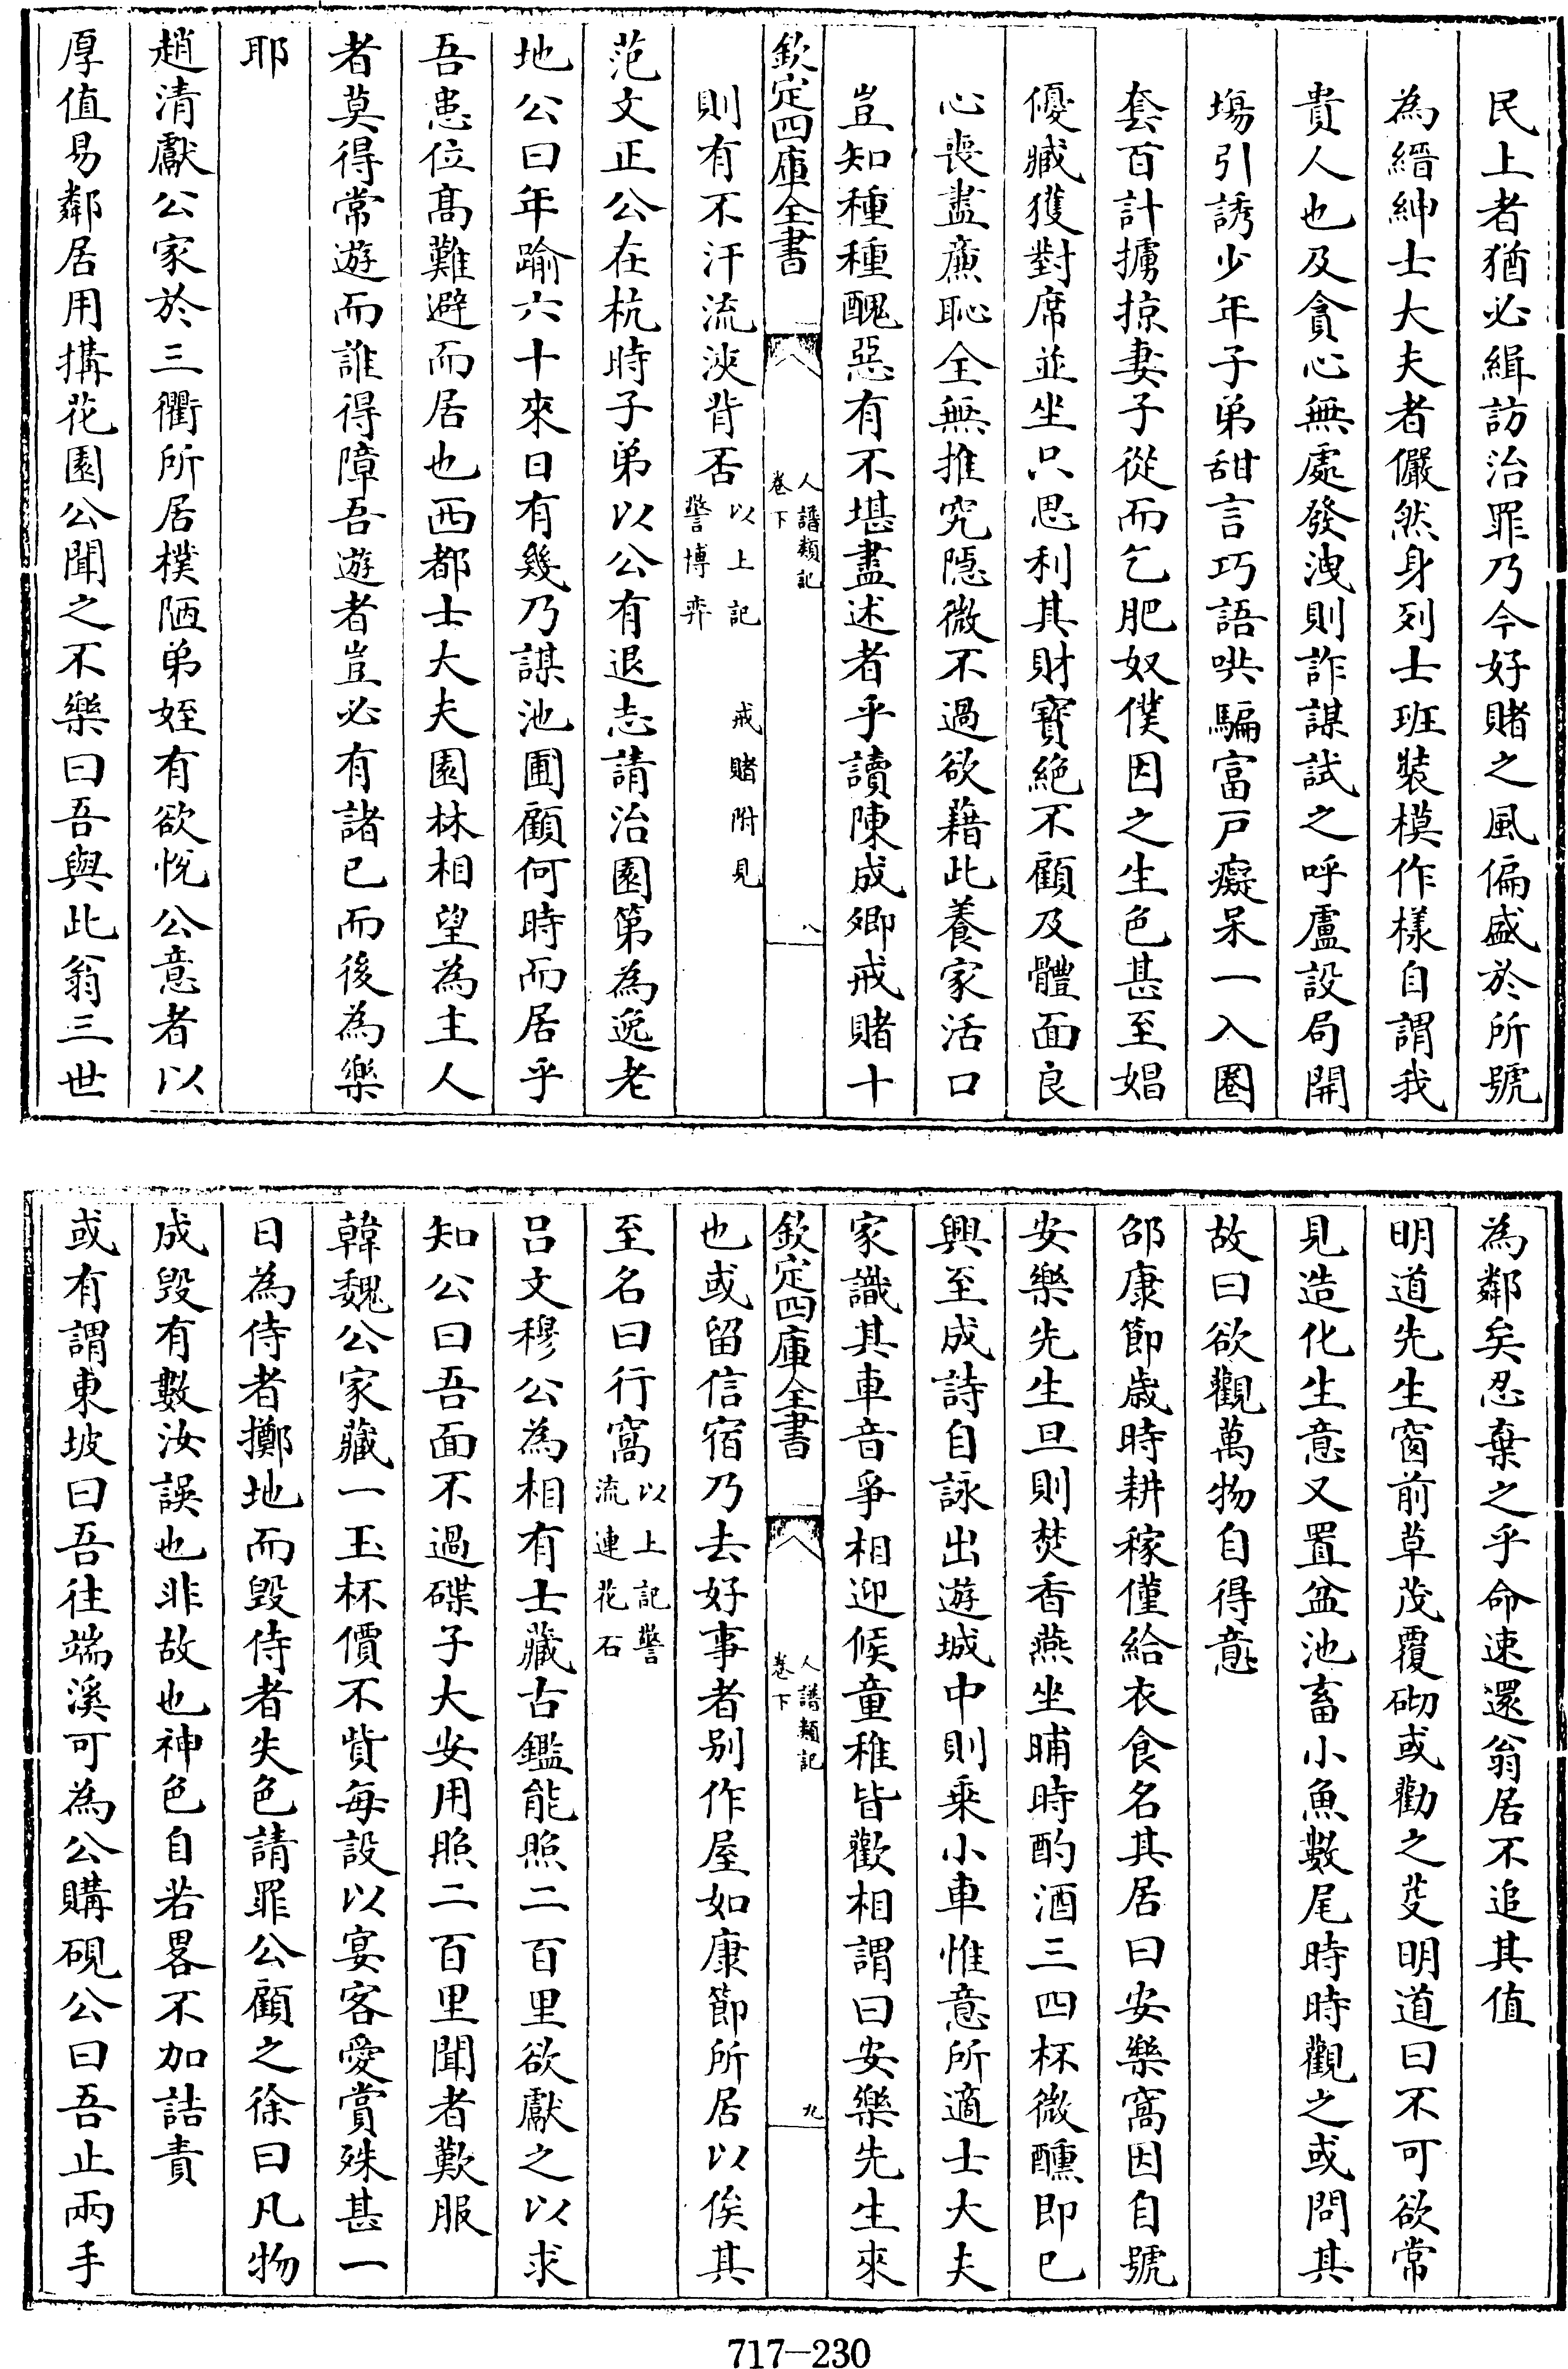 民上者猶必緝訪治罪乃今好賭之風偏盛於所號
為縉紳士大夫者儼然身列士班裝模作樣自謂我
貴人也及貪心無處發洩則詐謀試之呼盧設局開
塲引誘少年子弟甜言巧語哄騙富戸癡呆一入圈
套百計擄掠妻子從而乞肥奴僕因之生色甚至娼
優臧獲對席並坐只思利其財寶絶不顧及體面良
心喪盡亷恥全無推究隱微不過欲藉此養家活口
豈知種種醜惡有不堪盡述者乎讀陳成卿戒賭十
欽定四庫全書
人譜類記
卷下
八
則有不汗流浹背否以上記警博弈 戒賭附見
范文正公在杭時子弟以公有退志請治園第為逸老
地公曰年踰六十來日有幾乃謀池圃顧何時而居乎
吾患位髙難避而居也西都士大夫園林相望為主人
者莫得常遊而誰得障吾遊者豈必有諸已而後為樂
耶
趙清獻公家於三衢所居樸陋弟姪有欲悅公意者以
厚值易鄰居用搆花園公聞之不樂曰吾與此翁三世
為鄰矣忍棄之乎命速還翁居不追其值
明道先生窗前草茂覆砌或勸之芟明道曰不可欲常
見造化生意又置盆池畜小魚數尾時時觀之或問其
故曰欲觀萬物自得意
邵康節歲時耕稼僅給衣食名其居曰安樂窩因自號
安樂先生旦則焚香燕坐晡時酌酒三四杯微醺即已
興至成詩自詠出遊城中則乘小車惟意所適士大夫
家識其車音爭相迎候童稚皆歡相謂曰安樂先生來
欽定四庫全書
人譜類記
卷下
九
也或留信宿乃去好事者别作屋如康節所居以俟其
至名曰行窩以上記警流連花石
吕文穆公為相有士藏古鑑能照二百里欲獻之以求
知公曰吾面不過碟子大安用照二百里聞者歎服
韓魏公家藏一玉杯價不貲每設以宴客愛賞殊甚一
日為侍者擲地而毁侍者失色請罪公顧之徐曰凡物
成毁有數汝誤也非故也神色自若畧不加詰責
或有謂東坡曰吾往端溪可為公購硯公曰吾止兩手
717-230